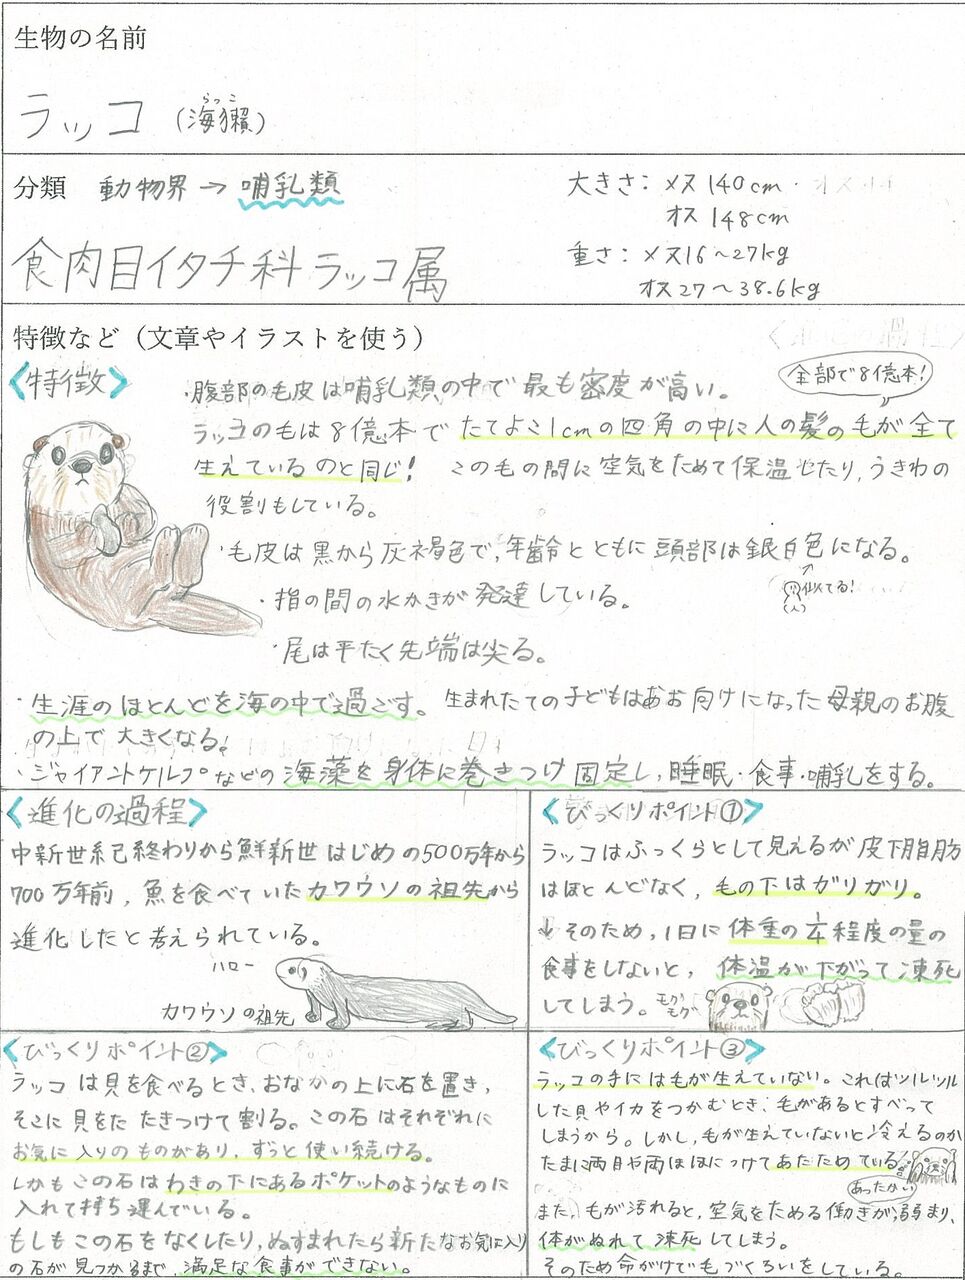 生物の名前
らっこ
ラッコ (海獺)
分類 動物界→哺乳類
食肉目イタチ科ラッコ属
大きさ:メス140cm
オス148cm
重さ:メス16〜27kg
オス27〜38.6kg
特徴など（文章やイラストを使う）
〈特徴〉
全部で8億本!
・腹部の毛皮は哺乳類の中で最も密度が高い。
ラッコのもは8億本でたてよこ1cmの四角の中に人の髪の毛が全て
生えているのと同じ! この毛の間に空気をためて保温したり,うきわの
役割もしている。
・毛皮は黒から灰褐色で,年齢とともに頭部は銀白色になる。
似てる!
・指の間の水かきが発達している。
・尾は平たく先端は尖る。
・生涯のほとんどを海の中で過ごす。生まれたての子どもはあお向けになった母親のお腹
の上で大きくなる!
・ジャイアントケルプなどの海藻を身体に巻きつけ固定し,睡眠・食事・哺乳をする。
〈進化の過程〉
中新世紀終わりから鮮新世はじめの500万年から
700万年前,魚を食べていたカワウソの祖先から
進化したと考えられている。
ハロー
カワウソの祖先
〈びっくりポイント①〉
ラッコはふっくらとして見えるが皮下脂肪
はほとんどなく,毛の下はガリガリ。
↓そのため,1日に体重の1/4程度の量の
食事をしないと,体温が下がって凍死
してしまう。
モグモグ
〈びっくりポイント②〉
ラッコは貝を食べるとき,おなかの上に石を置き,
そこに貝をたたきつけて割る。この石はそれぞれに
お気に入りのものがあり,ずっと使い続ける。
しかもこの石はわきの下にあるポケットのようなものに
入れて持ち運んでいる。
もしもこの石をなくしたり,ぬすまれたら新たなお気に入り
の石が見つかるまで,満足な食事ができない。
〈びっくりポイント③〉
ラッコの手には毛が生えていない。これはツルツル
した貝やイカをつかむとき,毛があるとすべって
しまうから。しかし,毛が生えていないと冷えるのか
たまに両目や両ほほにつけてあたためている!
あったかい
また,毛が汚れると,空気をためる働きが弱まり,
体がぬれて凍死してしまう。
そのため命がけで毛づくろいをしている。